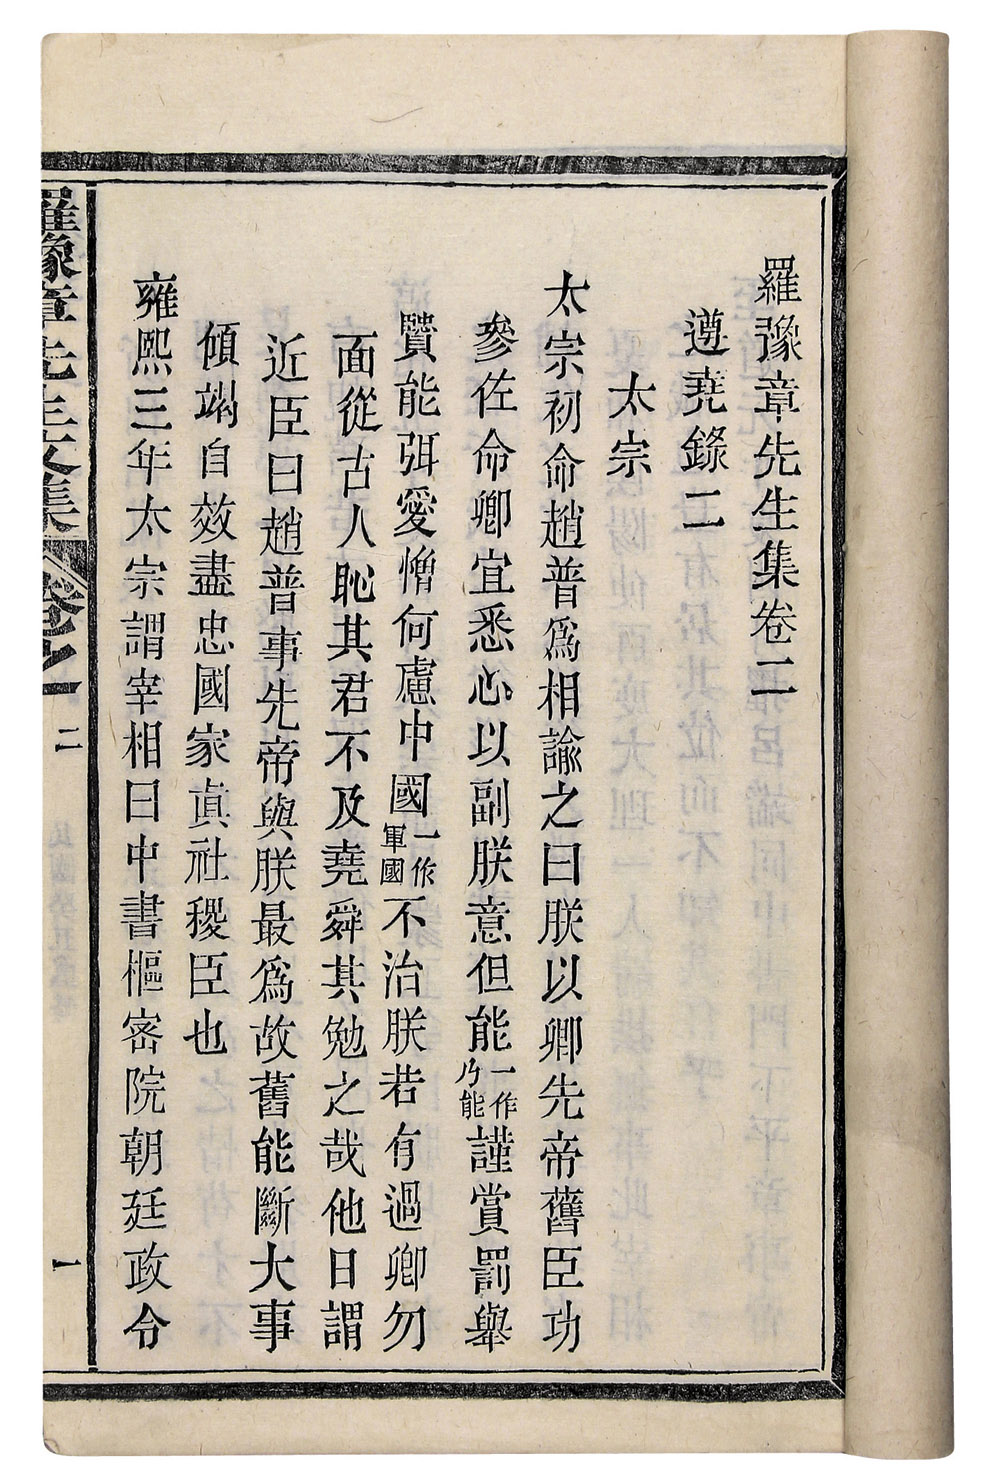 羅豫章先生集卷二
遵堯錄二
太宗
太宗初命趙普爲相諭之曰朕以卿先帝舊臣功
參佐命卿宜悉心以副朕意但能一作乃能謹賞罰舉
賢能弭愛憎何慮中國一作軍國不治朕若有過卿勿
面從古人恥其君不及堯舜其勉之哉他日謂
近臣曰趙普事先帝與朕最爲故舊能斷大事
傾竭自效盡忠國家眞社稷臣也
雍熙三年太宗謂宰相曰中書樞密院朝廷政令
羅豫章先生文集 卷之二 一